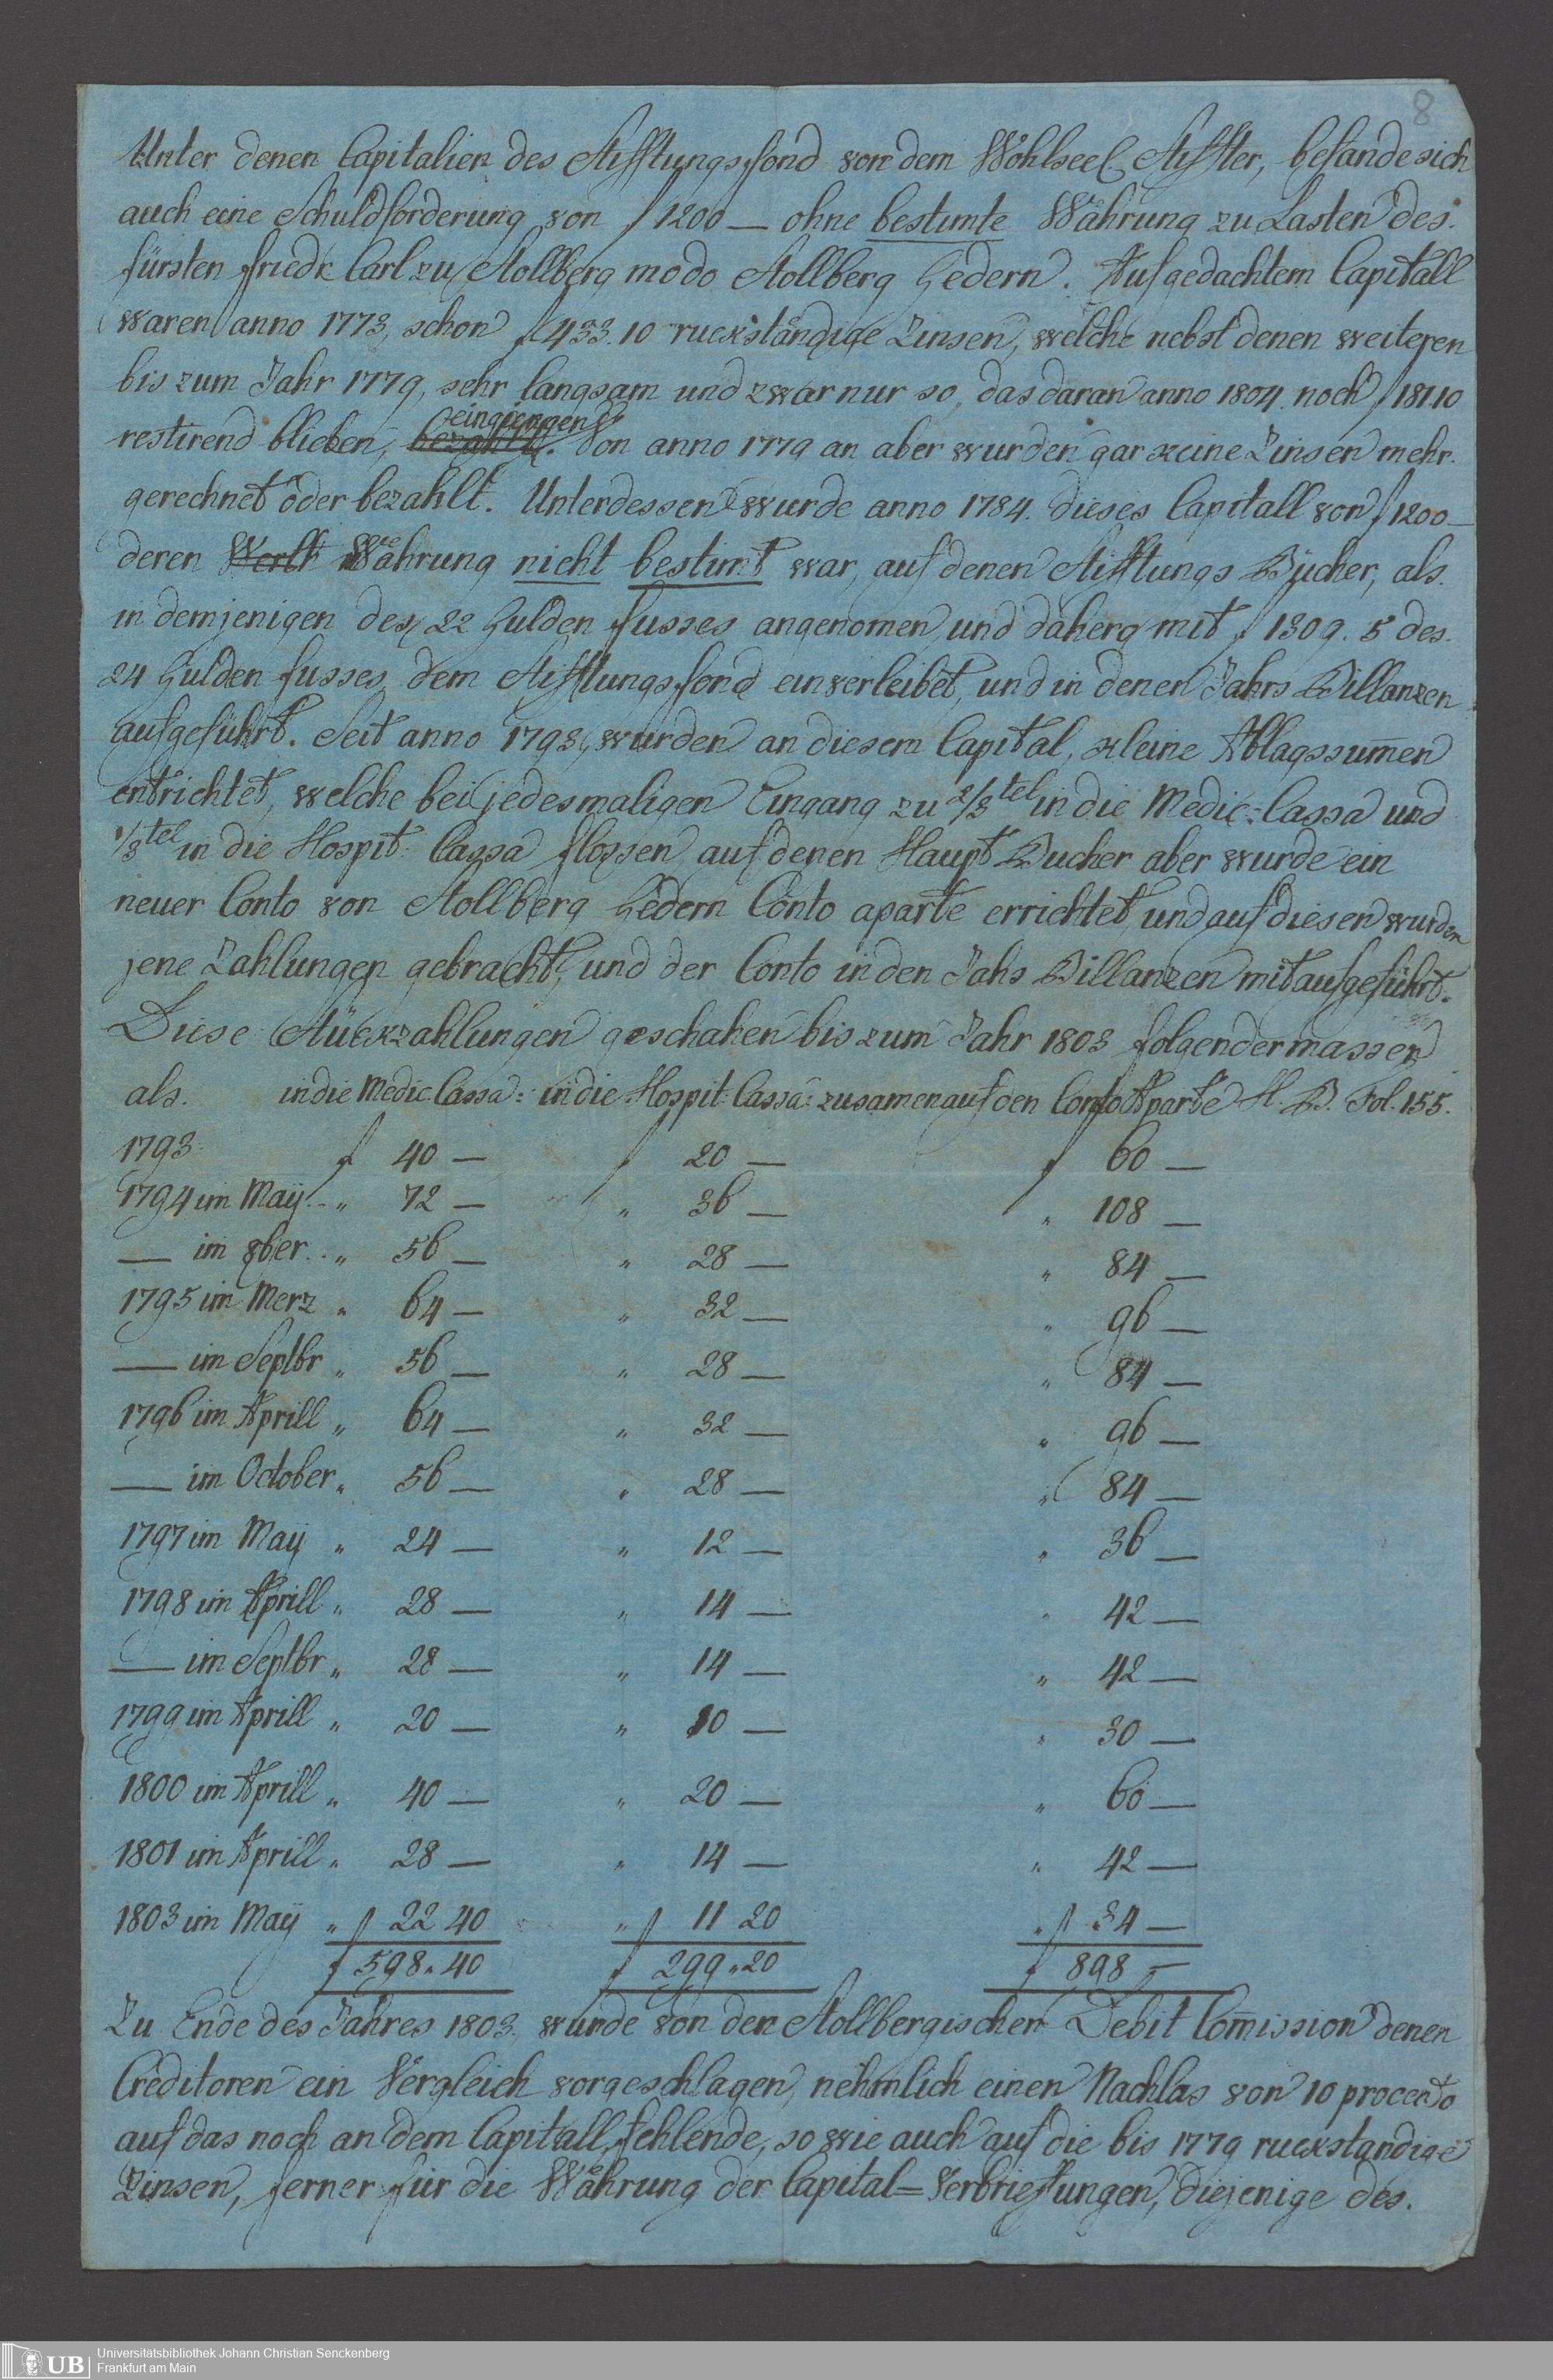 8
Unter denen Capitalien des Stifftungsfond von dem Wohlseel. Stiffter, befande sich
auch eine Schuldforderung von f 1200 — ohne bestimte Währung zu Lasten des.
fürsten friedr. Carl zu Stollberg modo Stollberg Gedern. Auf gedachtem Capitall
waren anno 1773, schon f 433.10 ruckständige Zinsen, welche nebst denen weiteren
bis zum Jahr 1779, sehr langsam und zwar nur so, das daran anno 1804. noch f 181.10
eingiengen
restirend blieben, bezahlt. Von anno 1779 an aber wurden gar keine Zinsen mehr.
gerechnet oder bezahlt. Unterdessen wurde anno 1784. dieses Capitall von f 1200 —
deren Werth Währung nicht bestimt war, auf denen Stifftungs Bücher, als.
in demjenigen des, 22 Gulden fusses angenomen, und dahero mit f 1309. 5 des.
24 Gulden fusses, dem Stifftungsfond einverleibet, und in denen Jahrs Billanzen
aufgeführt. Seit anno 1793, wurden an diesem Capital, kleine Ablagssum̄en
entrichtet, welche bei jedesmaligen Eingang zu 2/3tel in die Medic: Cassa und
1/3tel in die Hospit: Cassa flossen, auf denen Haupt Bucher aber wurde ein
neuer Conto von Stollberg Gedern Conto aparte errichtet, und auf diesen wurden
jene Zahlungen gebracht, und der Conto in den Jahs Billanzen mit aufgeführt.
Diese Stückzahlungen geschahen bis zum Jahr 1803 folgendermassen
als. in die Medic. Cassa: in die Hospit: Cassa: zusamen auf den Conto Aparte H. B. Fol. 155.
1793. f 40 — f 20 — f 60 —
1794 im Maÿ.. „ 72 — „ 36 — „ 108 —
— im 8ber.. „ 56 — „ 28 — „ 84 —
1795 im Merz „ 64 — „ 32 — „ 96 —
— im Septbr „ 56 — „ 28 — „ 84 —
1796 im Aprill „ 64 — „ 32 — „ 96 —
— im October „ 56 — „ 28 — „ 84 —
1797 im Maÿ „ 24 — „ 12 — „ 36 —
1798 im Aprill „ 28 — „ 14 — „ 42 —
— im Septbr „ 28 — „ 14 — „ 42 —
1799 im Aprill „ 20 — „ 10 — „ 30 —
1800 im Aprill „ 40 — „ 20 — „ 60 —
1801 im Aprill „ 28 — „ 14 — „ 42 —
1803 im Maÿ „ f 22 40 „ f 11 20 „ f 34 —
f 598 „ 40 f 299 „ 20 f 898 —
Zu Ende des Jahres 1803. wurde von der Stollbergischen Debit Com̄ission denen
Creditoren ein Vergleich vorgeschlagen, nehmlich einen Nachlas von 10 procento
auf das noch an dem Capitall, fehlende, so wie auch auf die bis 1779 ruckstandige
Zinsen, ferner für die Währung der Capital=Verbrieffungen, diejenige des.
UB Universitätsbibliothek Johann Christian Senckenberg
Frankfurt am Main